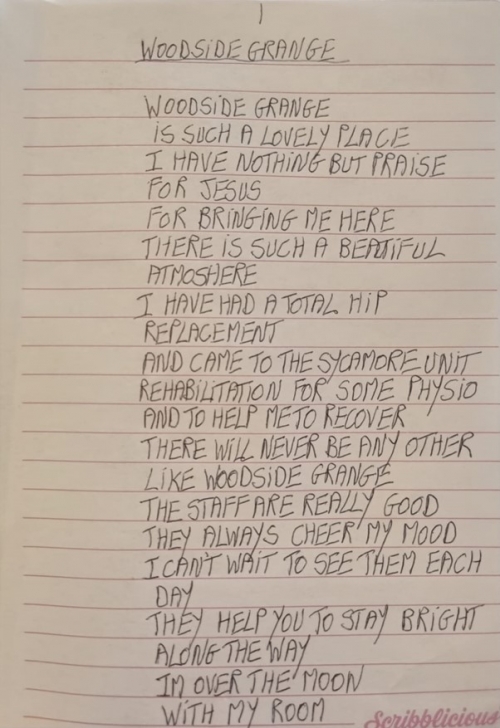 1
WOODSIDE GRANGE
WOODSIDE GRANGE
IS SUCH A LOVELY PLACE
I HAVE NOTHING BUT PRAISE
FOR JESUS
FOR BRINGING ME HERE
THERE IS SUCH A BEATIFUL
ATMOSHERE
I HAVE HAD A TOTAL HIP
REPLACEMENT
AND CAME TO THE SYCAMORE UNIT
REHABILITATION FOR SOME PHYSIO
AND TO HELP ME TO RECOVER
THERE WILL NEVER BE ANY OTHER
LIKE WOODSIDE GRANGE
THE STAFF ARE REALLY GOOD
THEY ALWAYS CHEER MY MOOD
I CAN'T WAIT TO SEE THEM EACH
DAY
THEY HELP YOU TO STAY BRIGHT
ALONG THE WAY
IM OVER THE MOON
WITH MY ROOM
Scribblicious